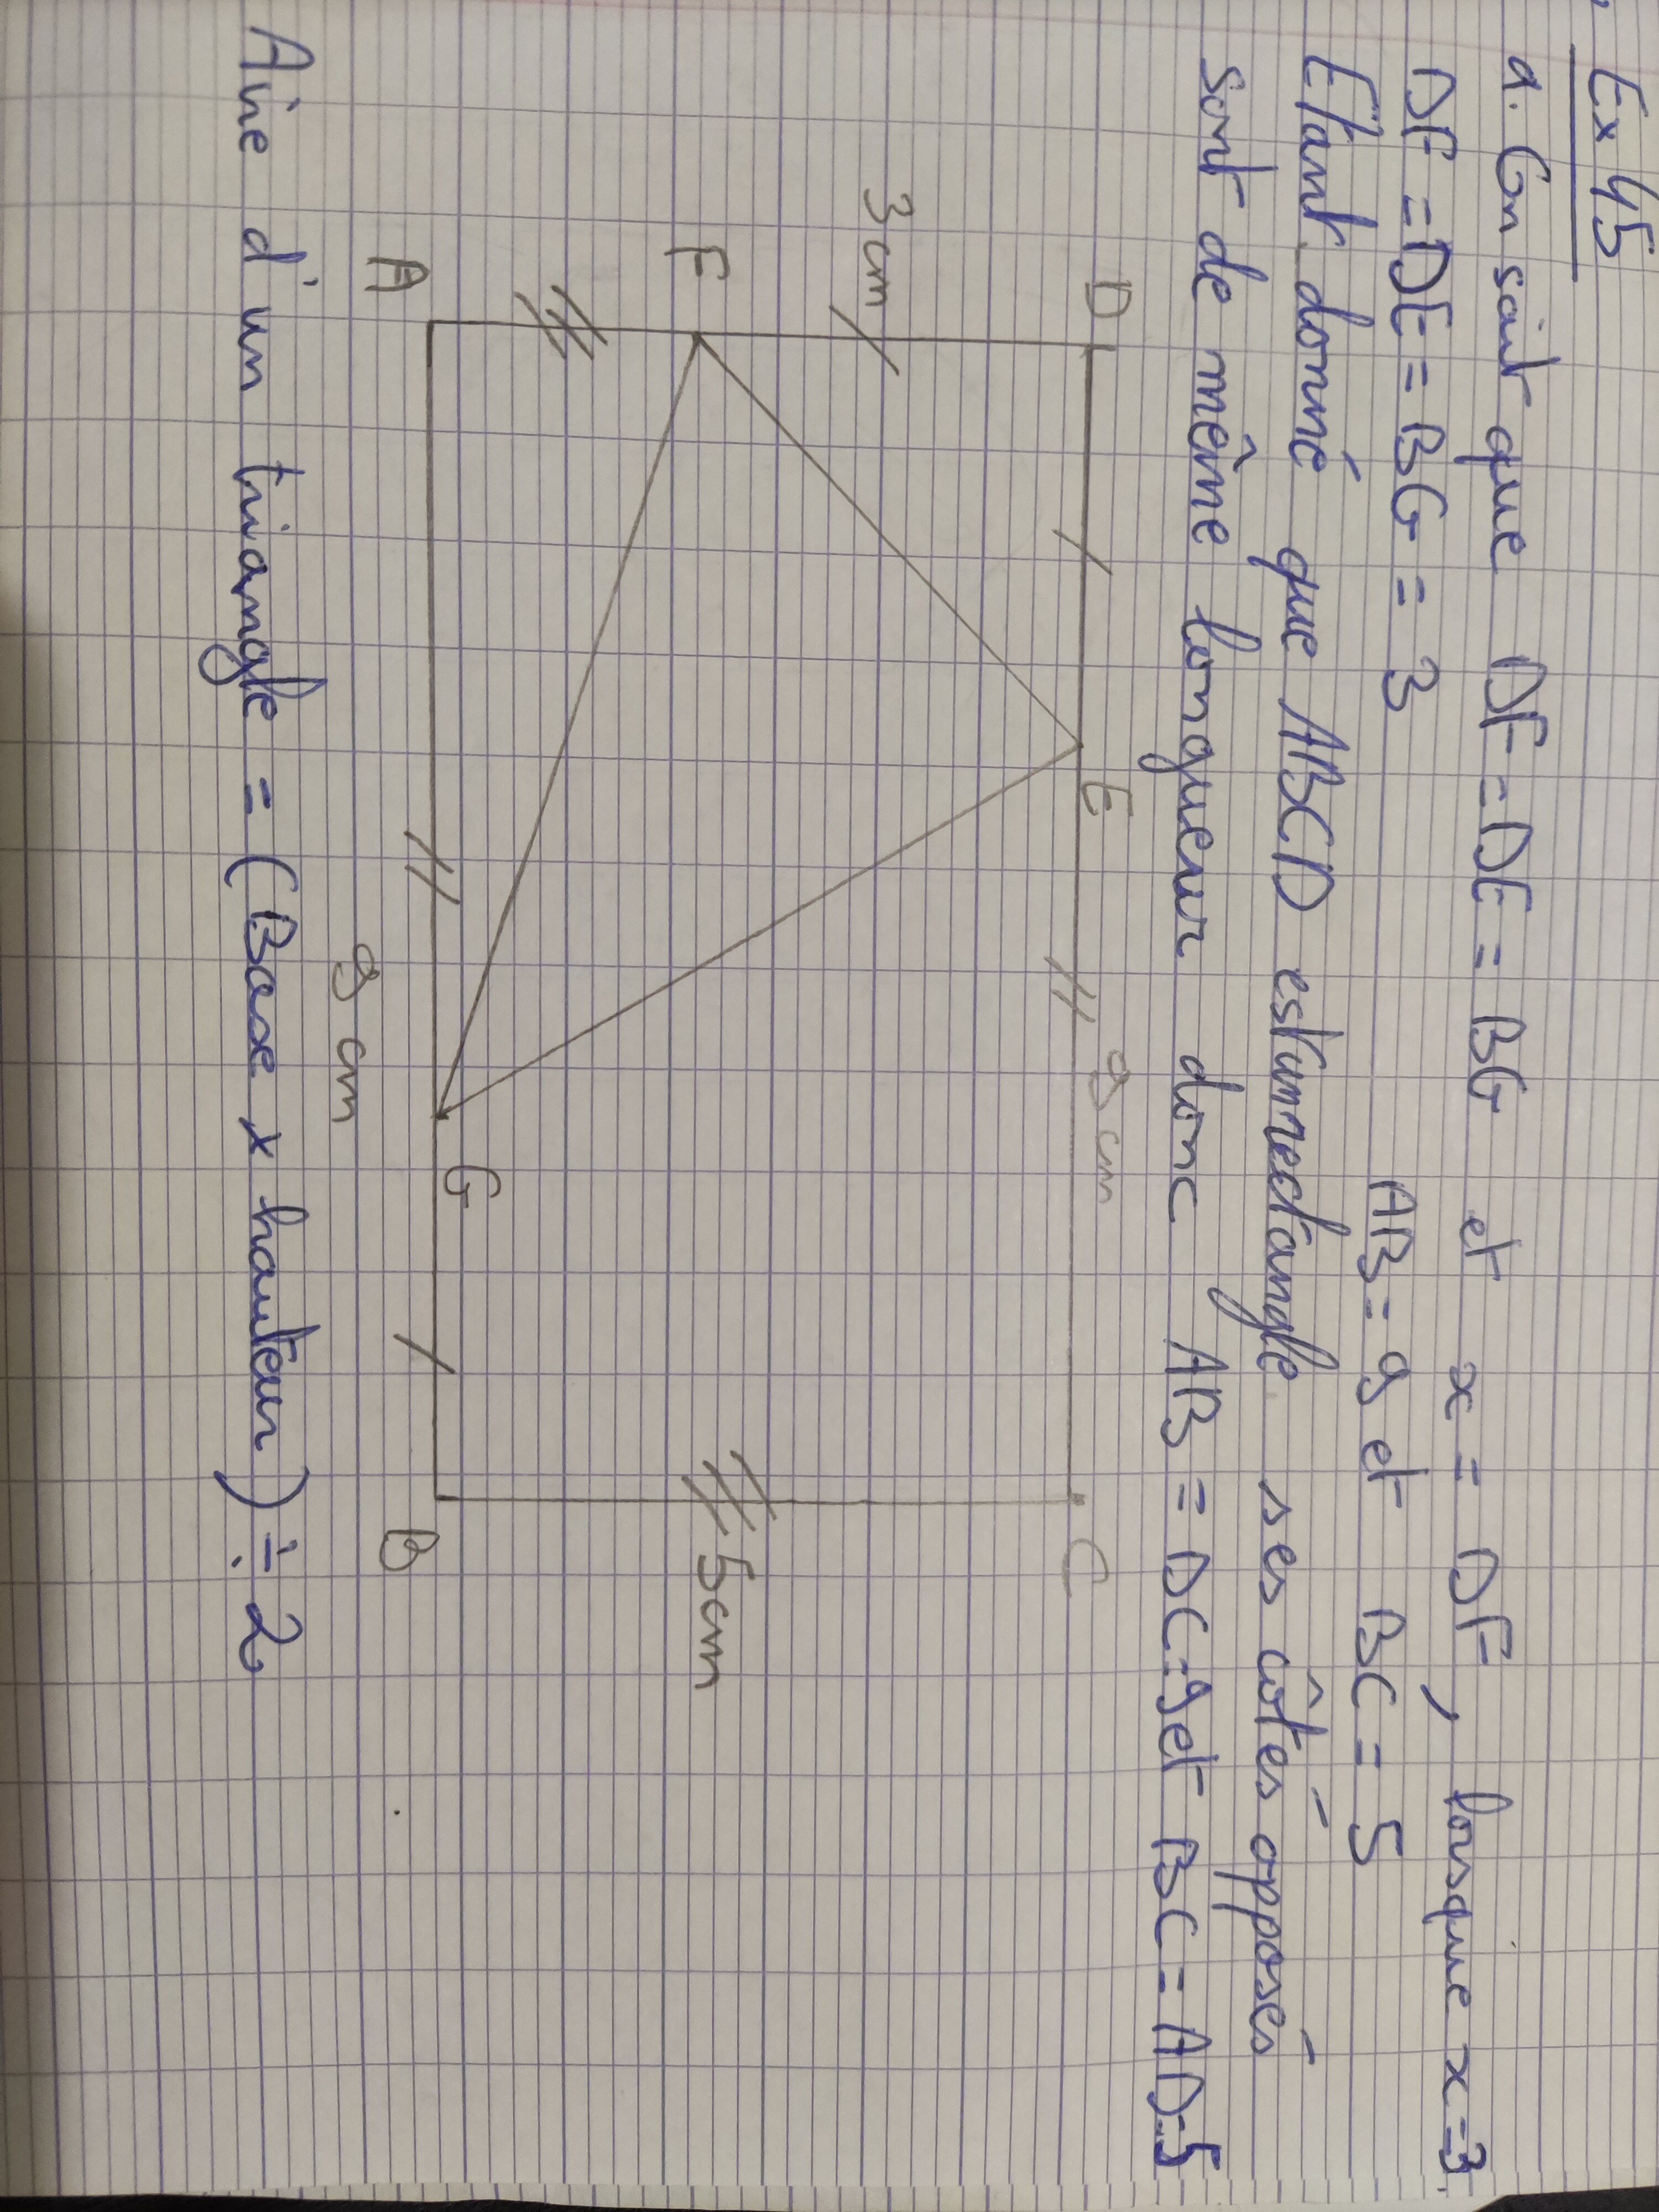 Ex 45
a. On sait que DF = DE = BG et x = DF, lorsque x = 3
DF = DE = BG = 3 AB = 9 et BC = 5
Etant donné que ABCD est un rectangle ses côtés opposés
sont de même longueur donc AB = DC = 9 et BC = AD = 5
D
E
9 cm
C
3 cm
F
5 cm
A
G
B
9 cm
Aire d'un triangle = (Base x hauteur) ÷ 2